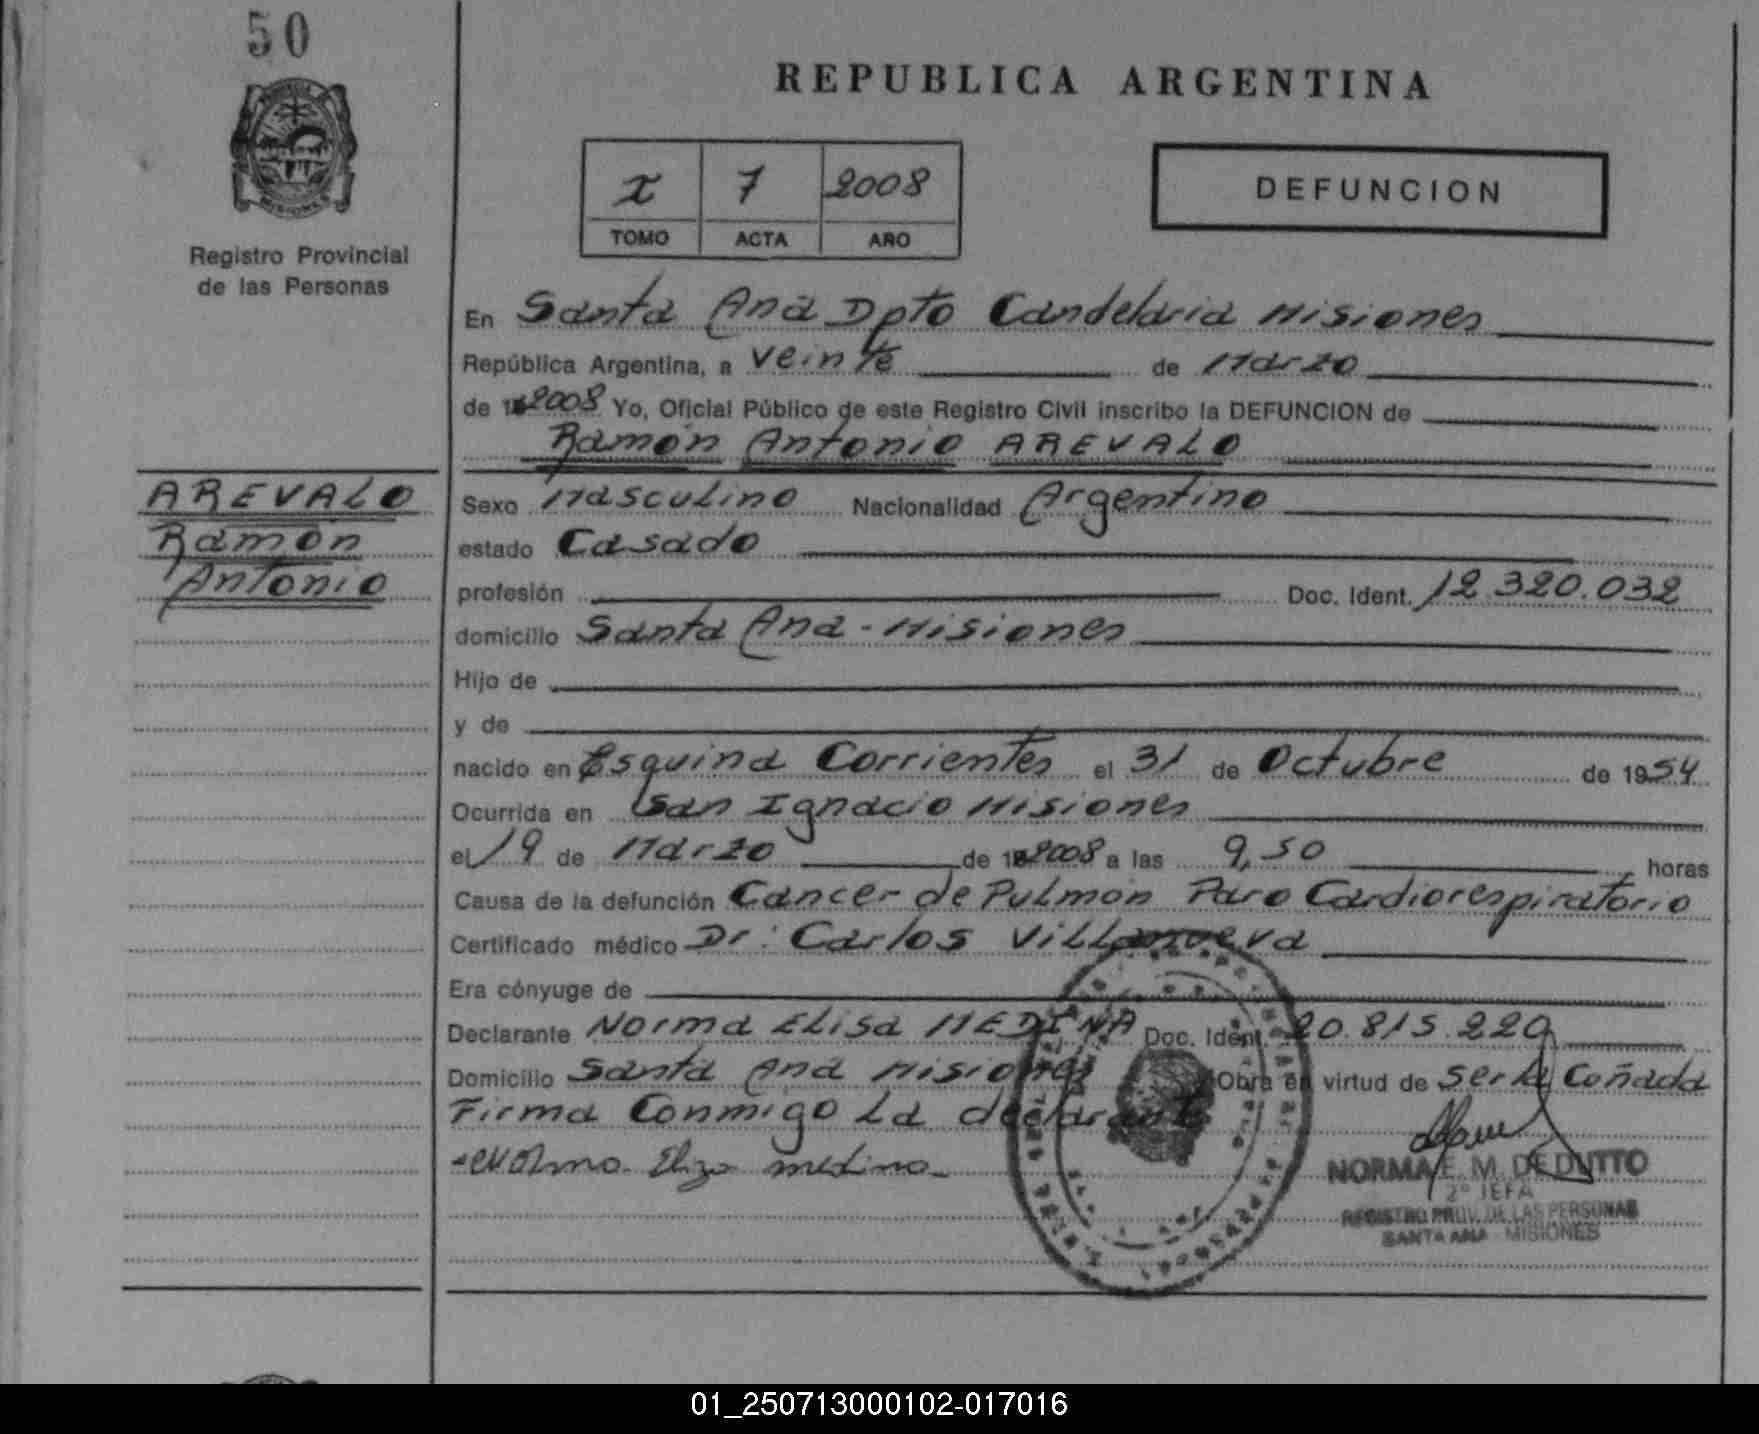 50
REPUBLICA ARGENTINA
I 7 2008
TOMO ACTA AÑO
DEFUNCION
MISIONES
Registro Provincial
de las Personas
En Santa Ana Dpto Candelaria Misiones
República Argentina, a veinte de Marzo
de 2008 Yo, Oficial Público de este Registro Civil inscribo la DEFUNCION de
Ramón Antonio AREVALO
AREVALO
Ramón
Antonio
Sexo Masculino Nacionalidad Argentino
estado Casado
profesión Doc. Ident. 12.320.032
domicilio Santa Ana - Misiones
Hijo de
y de
nacido en Esquina Corrientes el 31 de Octubre de 1954
Ocurrida en San Ignacio Misiones
el 19 de Marzo de 2008 a las 9,50 horas
Causa de la defunción Cancer de Pulmón Paro Cardiorespiratorio
Certificado médico Dr: Carlos Villanueva
Era cónyuge de
Declarante Norma Elisa MEDINA Doc. Ident. 20.815.220
Domicilio Santa Ana Misiones Obra en virtud de ser la Coñada
Firma Conmigo La declarante
Eliza medina
NORMA E. M. DE DUTTO
2° JEFA
REGISTRO PROV. DE LAS PERSONAS
SANTA ANA - MISIONES
01_250713000102-017016